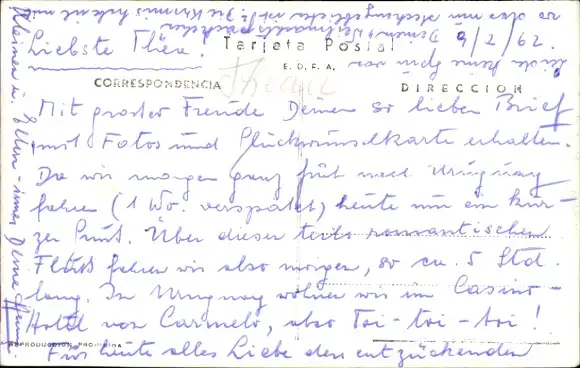 29/2/62
Liebste Thea!
Tarjeta Postal
E.D.F.A.
CORRESPONDENCIA
DIRECCION
Mit grosser Freude Deinen so lieben Brief
mit Fotos und Glückwunschkarte erhalten.
Da wir morgen ganz früh nach Uruguay
fahren (1 Wo. verspätet) heute nur ein kur-
zer Gruß. Über diesen teils romantischen
Fluss fahren wir also morgen, so ca. 5 Std.
lang. In Uruguay wohnen wir im Casino-
Hotel von Carmelo, also Toi-toi-toi!
Für heute alles Liebe den entzückenden
Kleinen u. Ellen - immer Deine
REPRODUCCION PROHIBIDA